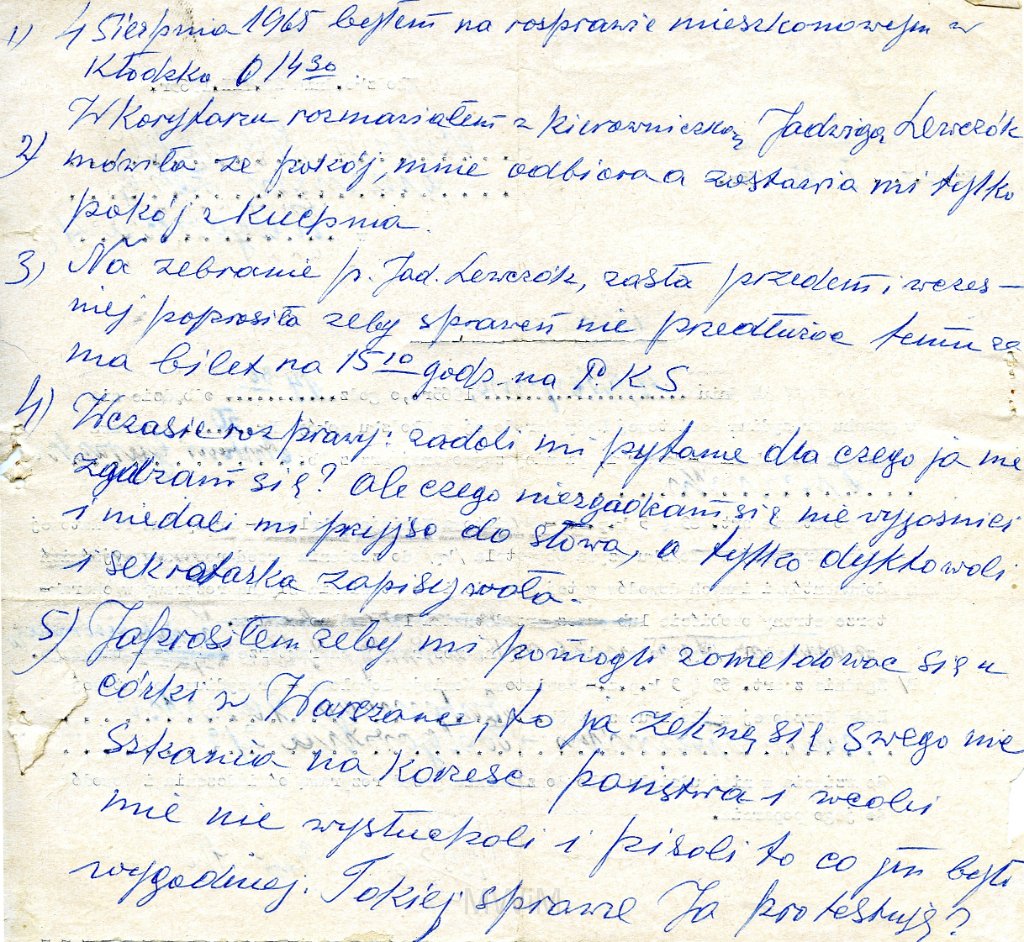 1) 4 Sierpnia 1965 byłem na rosprawie mieszkonowejm w
Kłodzko O 14 30
W Korytarzu rozmawiałem z kierowniczką Jadwigą Lewczók
2) mówiła ze pokój, mnie odbiora a zostawia mi tylko
pokój z kuchnia.
3) Na zebranie p. Jad. Lewczók, zasła przedem i wczes-
niej poprosiła zeby sprawen nie przedłużac temu ze
ma bilet na 15 10 godz. na PKS
4) Wczasie rozprawy: zadoli mi pytanie dla czego ja nie
zgadzam się? ale czego niezgadzam się nie wyjosnici
i niedali mi przyjso do słowa, a tylko dyktowoli
i sekretarka zapisywoła.
5) Japrosiłem zeby mi pomogli zomeldowac się u
córki w Warszawie, to ja zeknę się swego mie
szkania na korzesc panstwa i wcoli
mie nie wysłucholi i pisoli to co jim było
wygodniej. Tokiej sprawie Ja protestuję?
MWiM